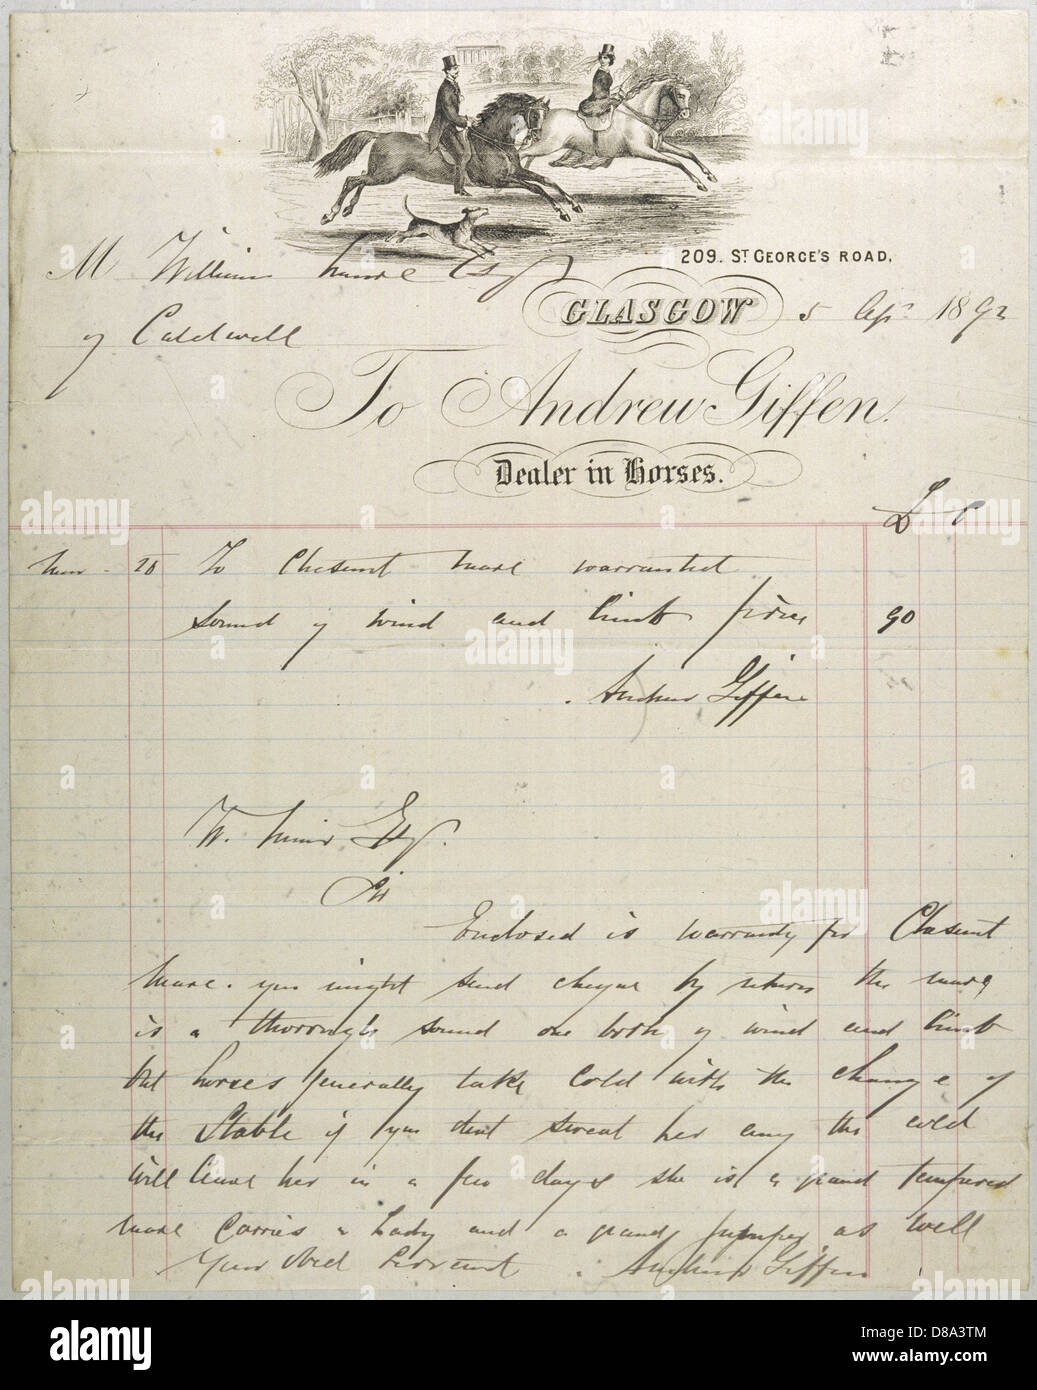 209. ST GEORGE'S ROAD,
M William Esq
GLASGOW 5 Apr 1892
of Caldwell
To Andrew Giffen.
Dealer in Horses.
£ s
20 To Chesnut mare warranted
sound of wind and limb price 90
Andrew Giffen
W. Esq.
Sir
Enclosed is warranty for Chesnut
mare. you might send cheque by return the mare
is a thorough sound one both of wind and limb
but horses generally take cold with the change of
the Stable if you dont sweat her any the cold
will leave her in a few days she is a grand tempered
mare Carries a Lady and a grand jumper as well
Your Obed Servant . Andrew Giffen
alamy
a
alamy
Image ID: D8A3TM
www.alamy.com